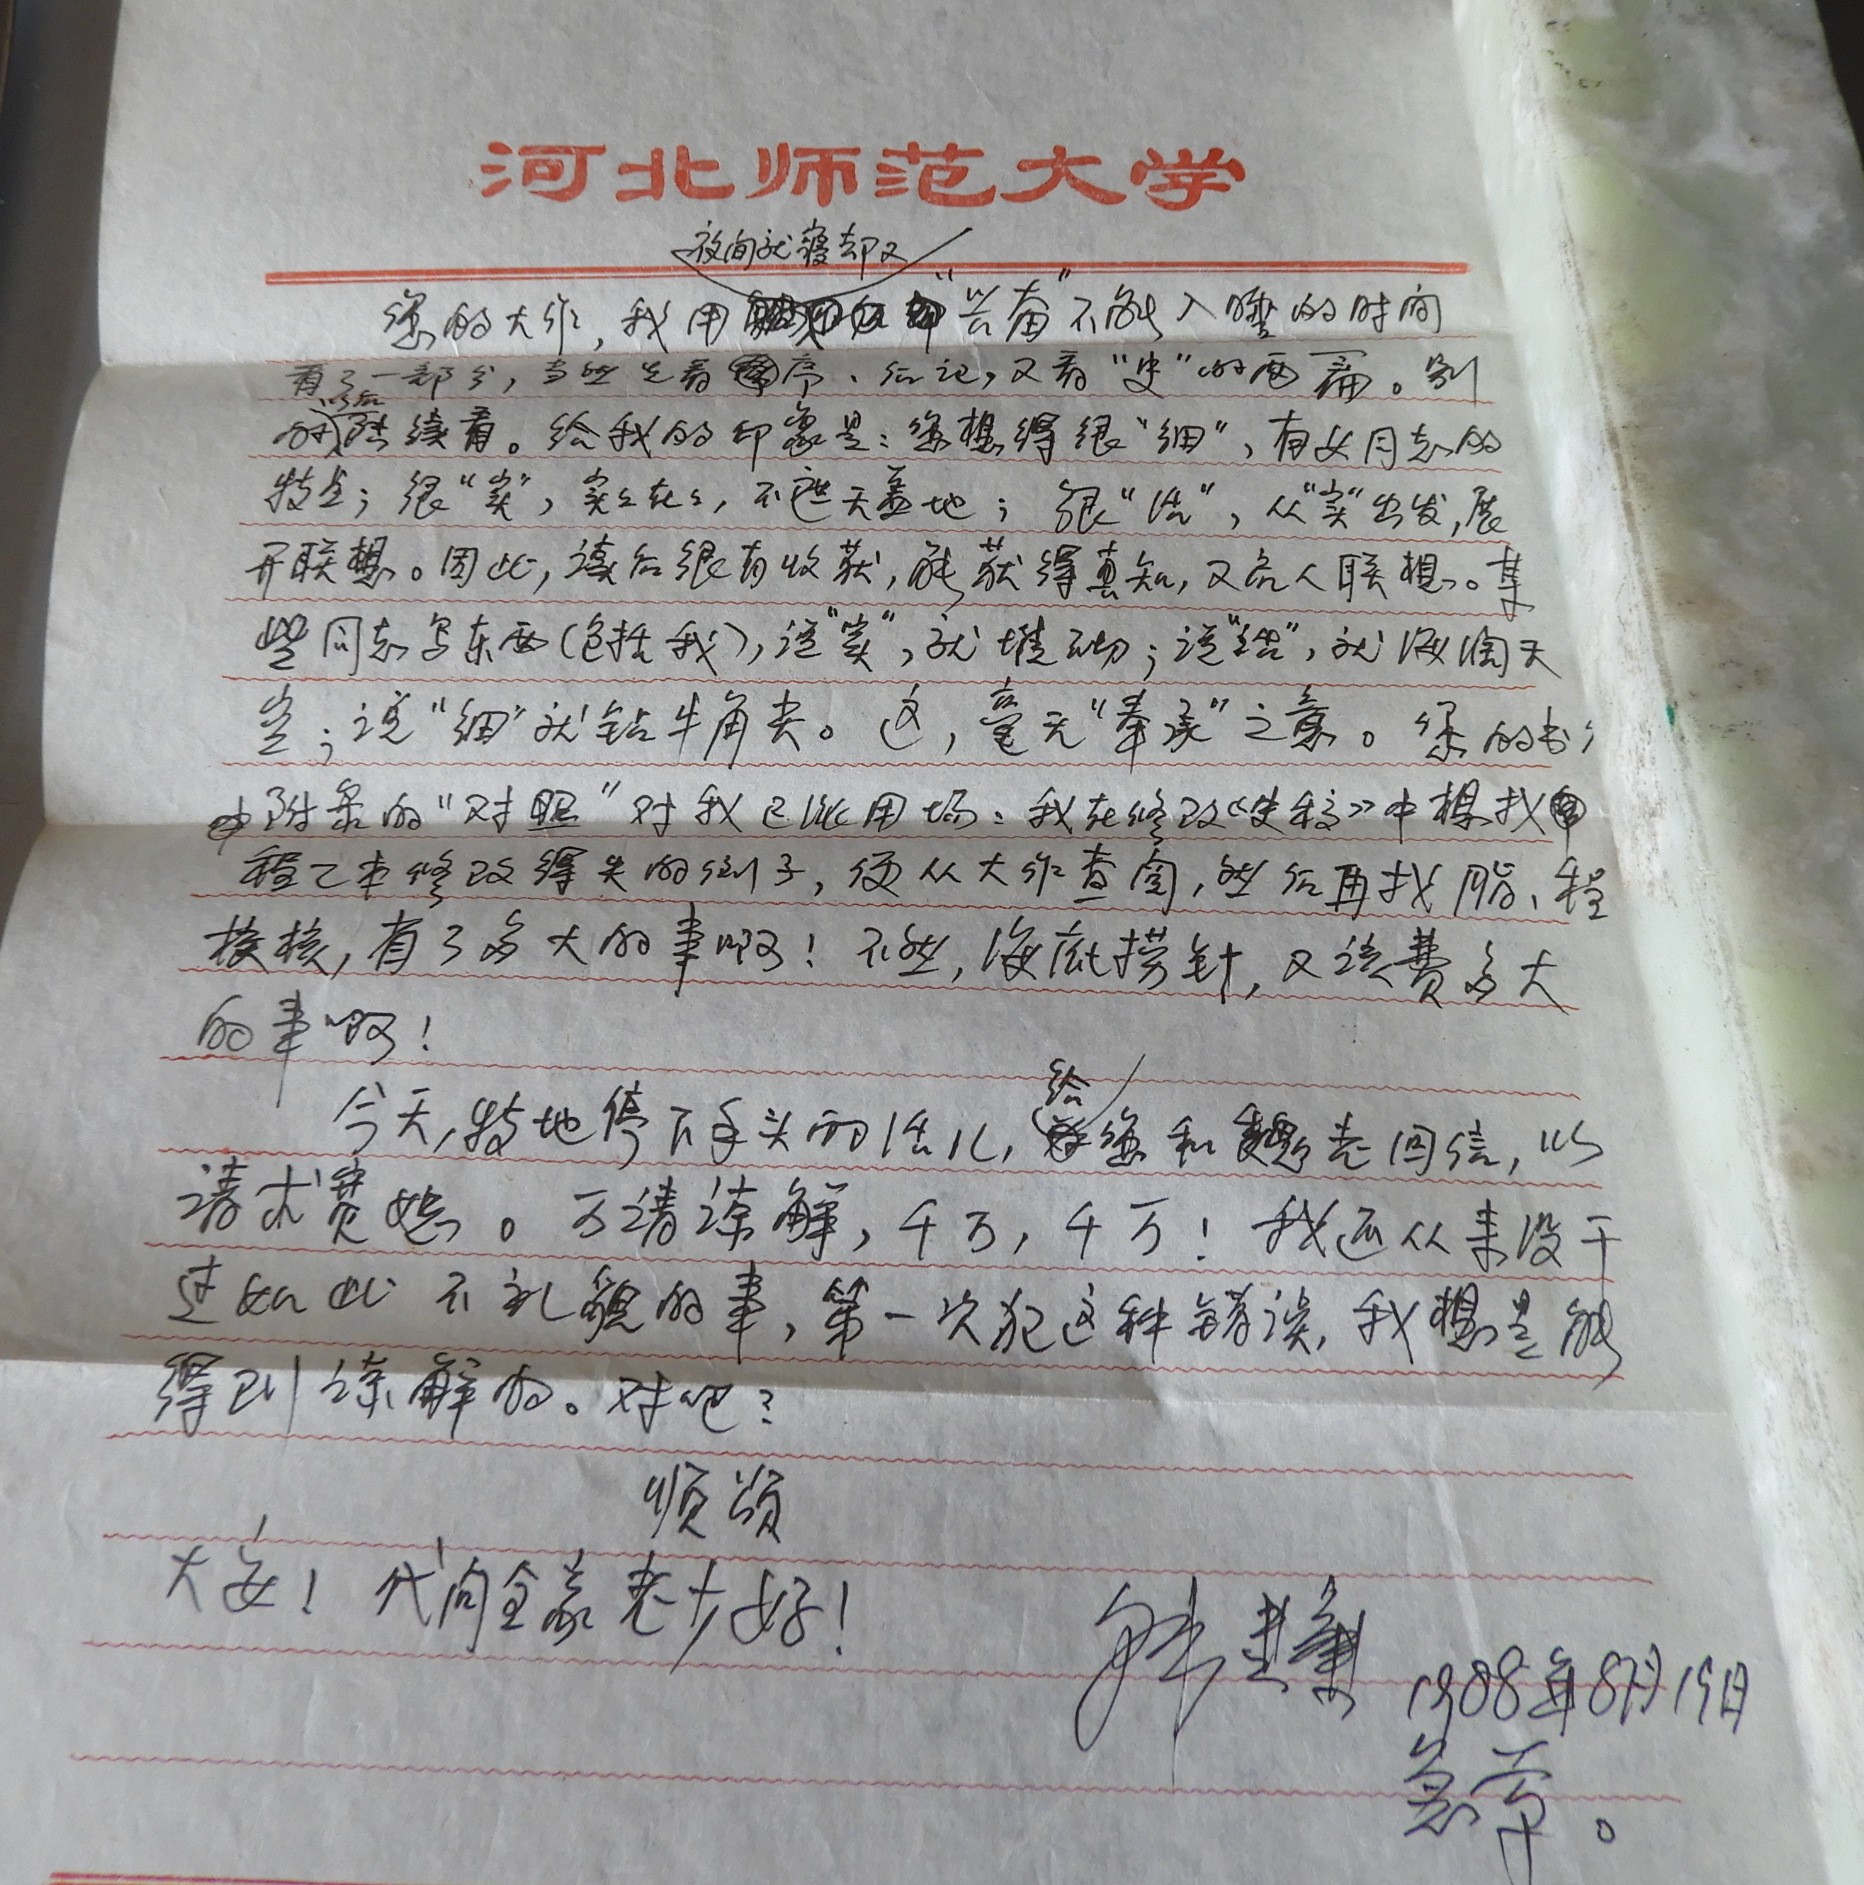 河北师范大学
夜间就寝却又
您的大作，我用“兴奋”不能入睡的时间
看了一部分，当然先看序、后记，又看“史”的两篇。别
的以后陆续看。给我的印象是：您想得很“细”，有女同志的
特点；很“实”，实々在々，不遮天盖地；很“活”，从“实”出发，展
开联想。因此，读后很有收获，能获得真知，又启人联想。某
些同志写东西（包括我），说“实”，就堆砌；说“活”，就海阔天
空；说“细”就钻牛角去。这，毫无“奉承”之意。您的书
中附录的“对照”对我已派用场：我在修改《史稿》中想找
程乙本修改得失的例子，便从大作查阅，然后再找脂、程
核核，省了多大的事啊！不然，海底捞针，又该费多大
的事啊！
今天，特地停下手头的活儿，给您和魏老回信，以
请求宽恕。万请谅解，千万，千万！我还从来没干
过如此不礼貌的事，第一次犯这种错误，我想是能
得到谅解的。对吧？
顺颂
大安！代向全家老少好！
1988年8月19日
急草。